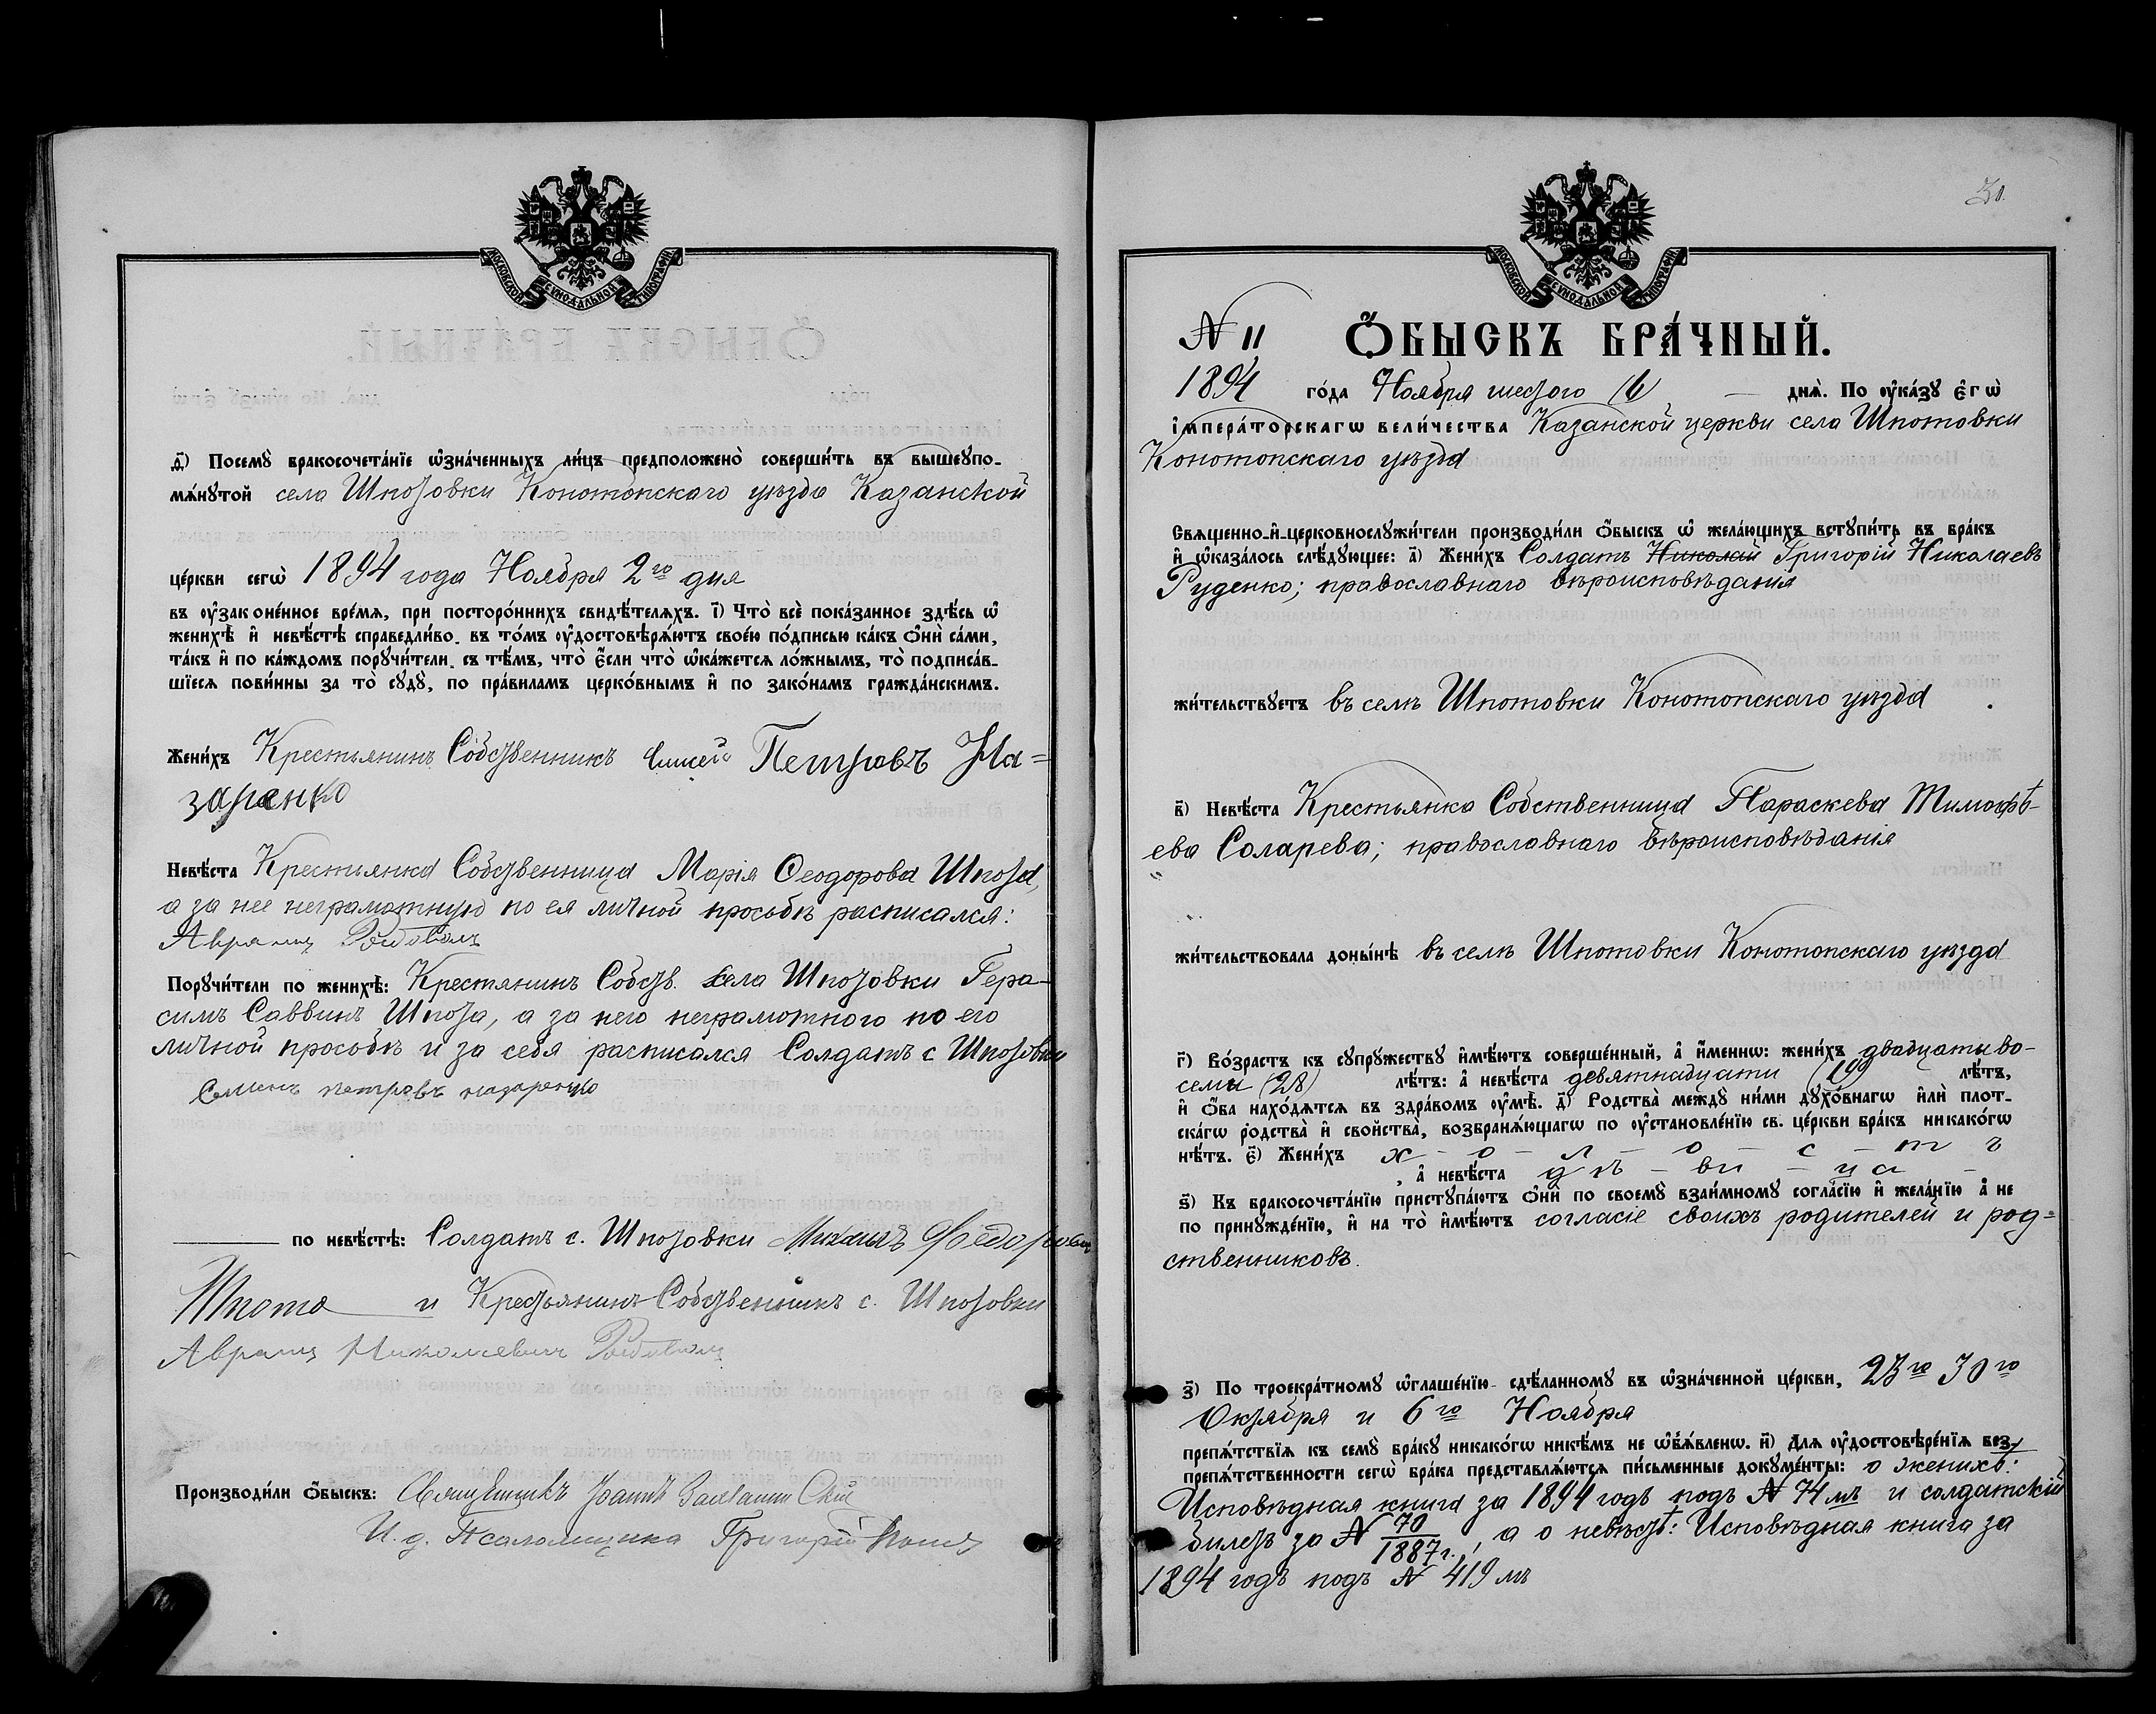 МОСКОВСКОЙ СѴНОДАЛЬНОЙ ТИПОГРАФІИ
д҃) Посемꙋ̀ бракосочета́нїе ѡ҆зна́ченныхъ ли́цъ предположено̀ соверши́ть въ вышеꙋпо-
мѧ́нꙋтой села Шпотовки Конотопскаго уѣзда Казанской
це́ркви сегѡ̀ 1894 года Ноября 2го дня
въ ᲂу҆законе́нное вре́мѧ, при посторо́ннихъ свидѣ́телѧхъ. і҃) Что̀ всѐ пока́занное здѣ́сь ѡ҆
женихѣ̀ и҆ невѣ́стѣ справедли́во. въ то́мъ ᲂу҆достовѣрѧ́ютъ свое́ю по́дписью ка́къ ѻ҆нѝ са́ми,
та́къ и҆ по ка́ждомъ порꙋчи́тели. съ тѣ́мъ, что̀ є҆́сли что̀ ѡ҆ка́жетсѧ ло́жнымъ, то̀ подписа́в-
шїесѧ пови́нны за то̀ сꙋдꙋ̀, по пра́виламъ церко́внымъ и҆ по зако́намъ гражда́нскимъ.
Жени́хъ Крестьянинъ Собственникъ Петровъ На=
заренко
Невѣ́ста Крестьянка Собственница Марія Ѳеодорова Шпота,
а за нее неграмотную по ея личной просьбѣ расписался:
Аврамъ
Порꙋчи́тели по женихѣ̀: Крестянинъ Собств. села Шпотовки Гера-
симъ Саввинъ Шпота, а за него неграмотного по его
личной просьбѣ и за себя расписался Солдатъ с Шпотовки
Семенъ петровъ назаренко
по невѣ́стѣ: Солдатъ с. Шпотовки Михаилъ Федоровъ
Шпота и Крестьянинъ Собственникъ с. Шпотовки
Аврамъ Николаевичъ
Производи́ли ѻ҆́быскъ: Священникъ Іоаннъ
И. д. Псаломщика Григорій
30.
МОСКОВСКОЙ СѴНОДАЛЬНОЙ ТИПОГРАФІИ
N 11 Ѻ҆́БЫСКЪ БРА́ЧНЫЙ.
1894 го́да Ноября шестого (6) днѧ̀. По ᲂу҆ка́зꙋ є҆гѡ̀
і҆мпера́торскагѡ вели́чества Казанской церкви села Шпотовки
Конотопскаго уѣзда
Свѧщенно-и҆-церковнослꙋжи́тели производи́ли ѻ҆́быскъ ѡ҆ жела́ющихъ встꙋпи́ть въ бра́къ
и҆ ѡ҆каза́лось слѣ́дꙋющее: а҃) Жени́хъ Солдатъ Николай Григорій Николаевъ
Руденко; православнаго вѣроисповѣдания
жи́тельствꙋетъ въ селѣ Шпотовки Конотопскаго уѣзда
в҃) Невѣ́ста Крестьянка Собственница Параскева Тимофѣ-
ева Соларева; православнаго вѣроисповѣданія
жи́тельствовала доны́нѣ въ селѣ Шпотовки Конотопскаго уѣзда
г҃) Во́зрастъ къ сꙋпрꙋ́жествꙋ и҆мѣ́ютъ соверше́нный, а҆ и҆́менно: жени́хъ двадцати во-
семи (28) лѣ́тъ: а҆ невѣ́ста девятнадцати (19) лѣ́тъ,
и҆ ѻ҆́ба нахо́дѧтсѧ въ здра́вомъ ᲂу҆мѣ̀. д҃) Родства̀ междꙋ̀ ни́ми дꙋхо́внагѡ и҆лѝ плот-
ска́гѡ родства̀ и҆ свойства̀, возбранѧ́ющагѡ по ᲂу҆становле́нїю св. це́ркви бра́къ никако́гѡ
нѣ́тъ. є҃) Жени́хъ х – о – л – о – с – т ъ
, а҆ невѣ́ста дѣ – ви – ца –
ѕ҃) Къ бракосочета́нїю пристꙋпа́ютъ ѻ҆нѝ по своемꙋ̀ взаи́мномꙋ согла́сїю и҆ жела́нїю а҆ не
по принꙋжде́нїю, и҆ на то̀ и҆мѣ́ютъ согласіе своихъ родителей и род=
ственниковъ.
з҃) По троекра́тномꙋ ѡ҆глаше́нїю сдѣ́ланномꙋ въ ѡ҆зна́ченной це́ркви, 23го 30го
Октября и 6го Ноября
препѧ́тствїѧ къ семꙋ̀ бра́кꙋ никако́гѡ никѣ́мъ не ѡ҆б̾ѧ́вленѡ. и҃) Длѧ ᲂу҆достовѣре́нїѧ без-
препѧ́тственности сегѡ̀ бра́ка представлѧ́ютсѧ пи́сьменные докꙋме́нты: о женихѣ:
Исповѣдная книга за 1894 годъ подъ N 74 мъ и солдатскій
билетъ за N 70/1887 г., а о невѣстѣ: Исповѣдная книга за
1894 годъ подъ N 419 мъ